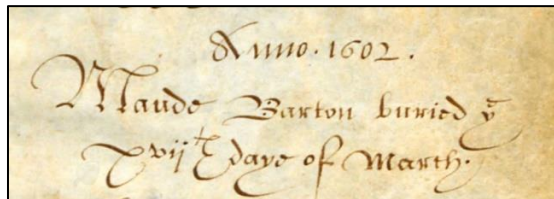 Anno. 1602.
Maude Barton buried yͤ
xvijᵗʰ daye of March.